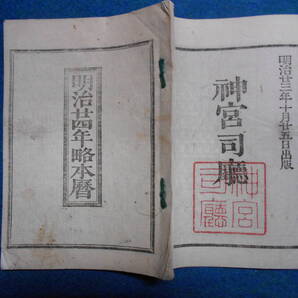 明治廿三年十月廿五日出版
神宮司廳
神宮
司廳
明治廿四年略本暦